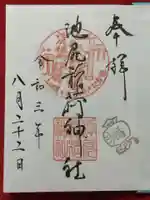 奉拝
池尻稲荷神社
令和三年
八月二十二日